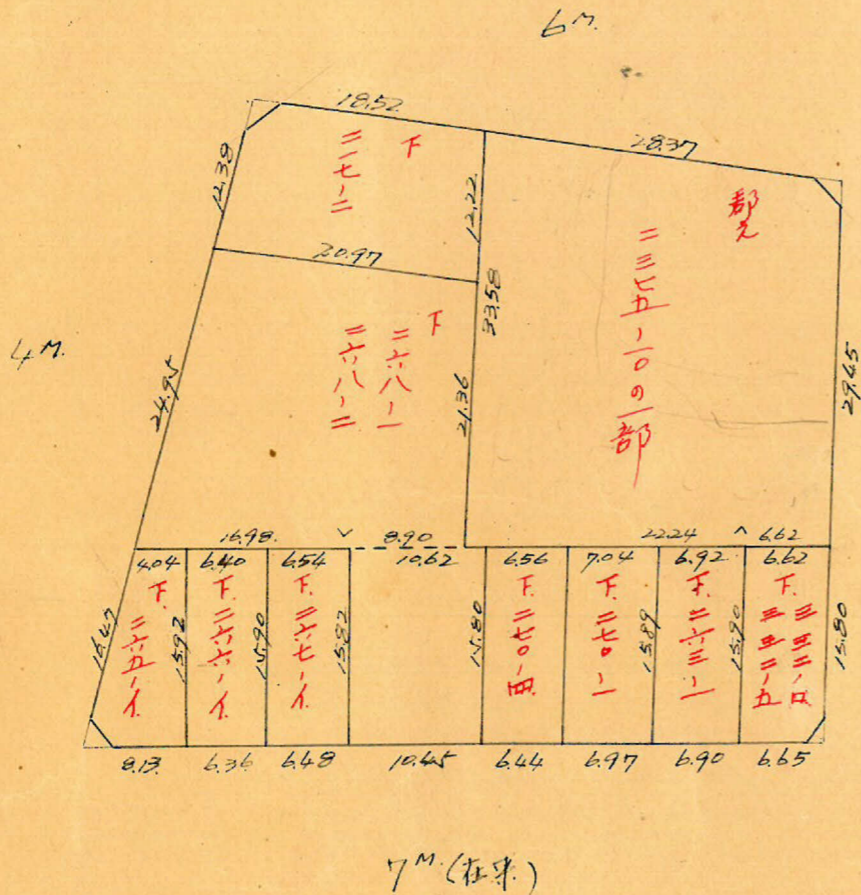 6M.
18.52
28.37
12.38
下
二一七ノ二
12.22
都元
二三七五ノ一〇の一部
20.97
33.58
4M.
24.95
下
二六八ノ一
二六八ノ二
21.36
29.65
16.98
8.90
22.24
6.62
4.04
6.40
6.54
10.62
6.56
7.04
6.92
6.62
16.47
下.二六五ノイ.
15.92
下.二六六ノイ.
15.90
下.二六七ノイ.
15.82
15.80
下.二七〇ノ四.
下.二七〇ノ一
15.89
下.二六三ノ一
15.90
下.三三二ノロ
三三二ノ五
15.80
8.13.
6.36
6.48
10.45
6.44
6.97
6.90
6.65
7M.(在来)